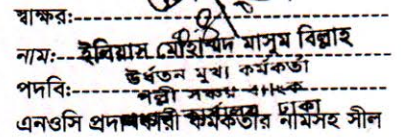 স্বাক্ষর:
নাম: ইলিয়াস মোহাম্মদ মাসুম বিল্লাহ
উর্ধতন মুখ্য কর্মকর্তা
পদবি: পল্লী সঞ্চয় ব্যাংক
ঢাকা
এনওসি প্রদানকারী কর্মকর্তার নামসহ সীল